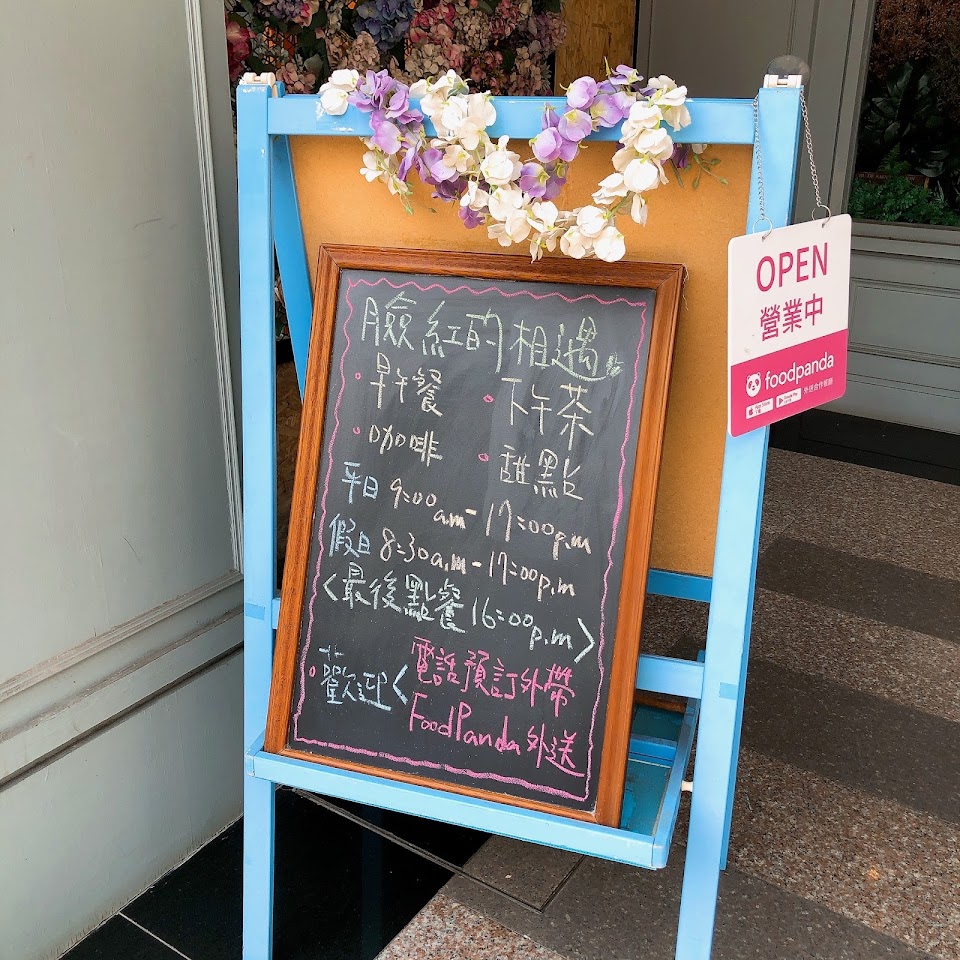 臉紅的相遇
早午餐 下午茶
咖啡 甜點
平日 9:00a.m-17:00p.m
假日 8:30a.m-17:00p.m
<最後點餐16:00p.m>
歡迎<電話預訂外帶
FoodPanda外送
OPEN
營業中
foodpanda
外送合作餐廳